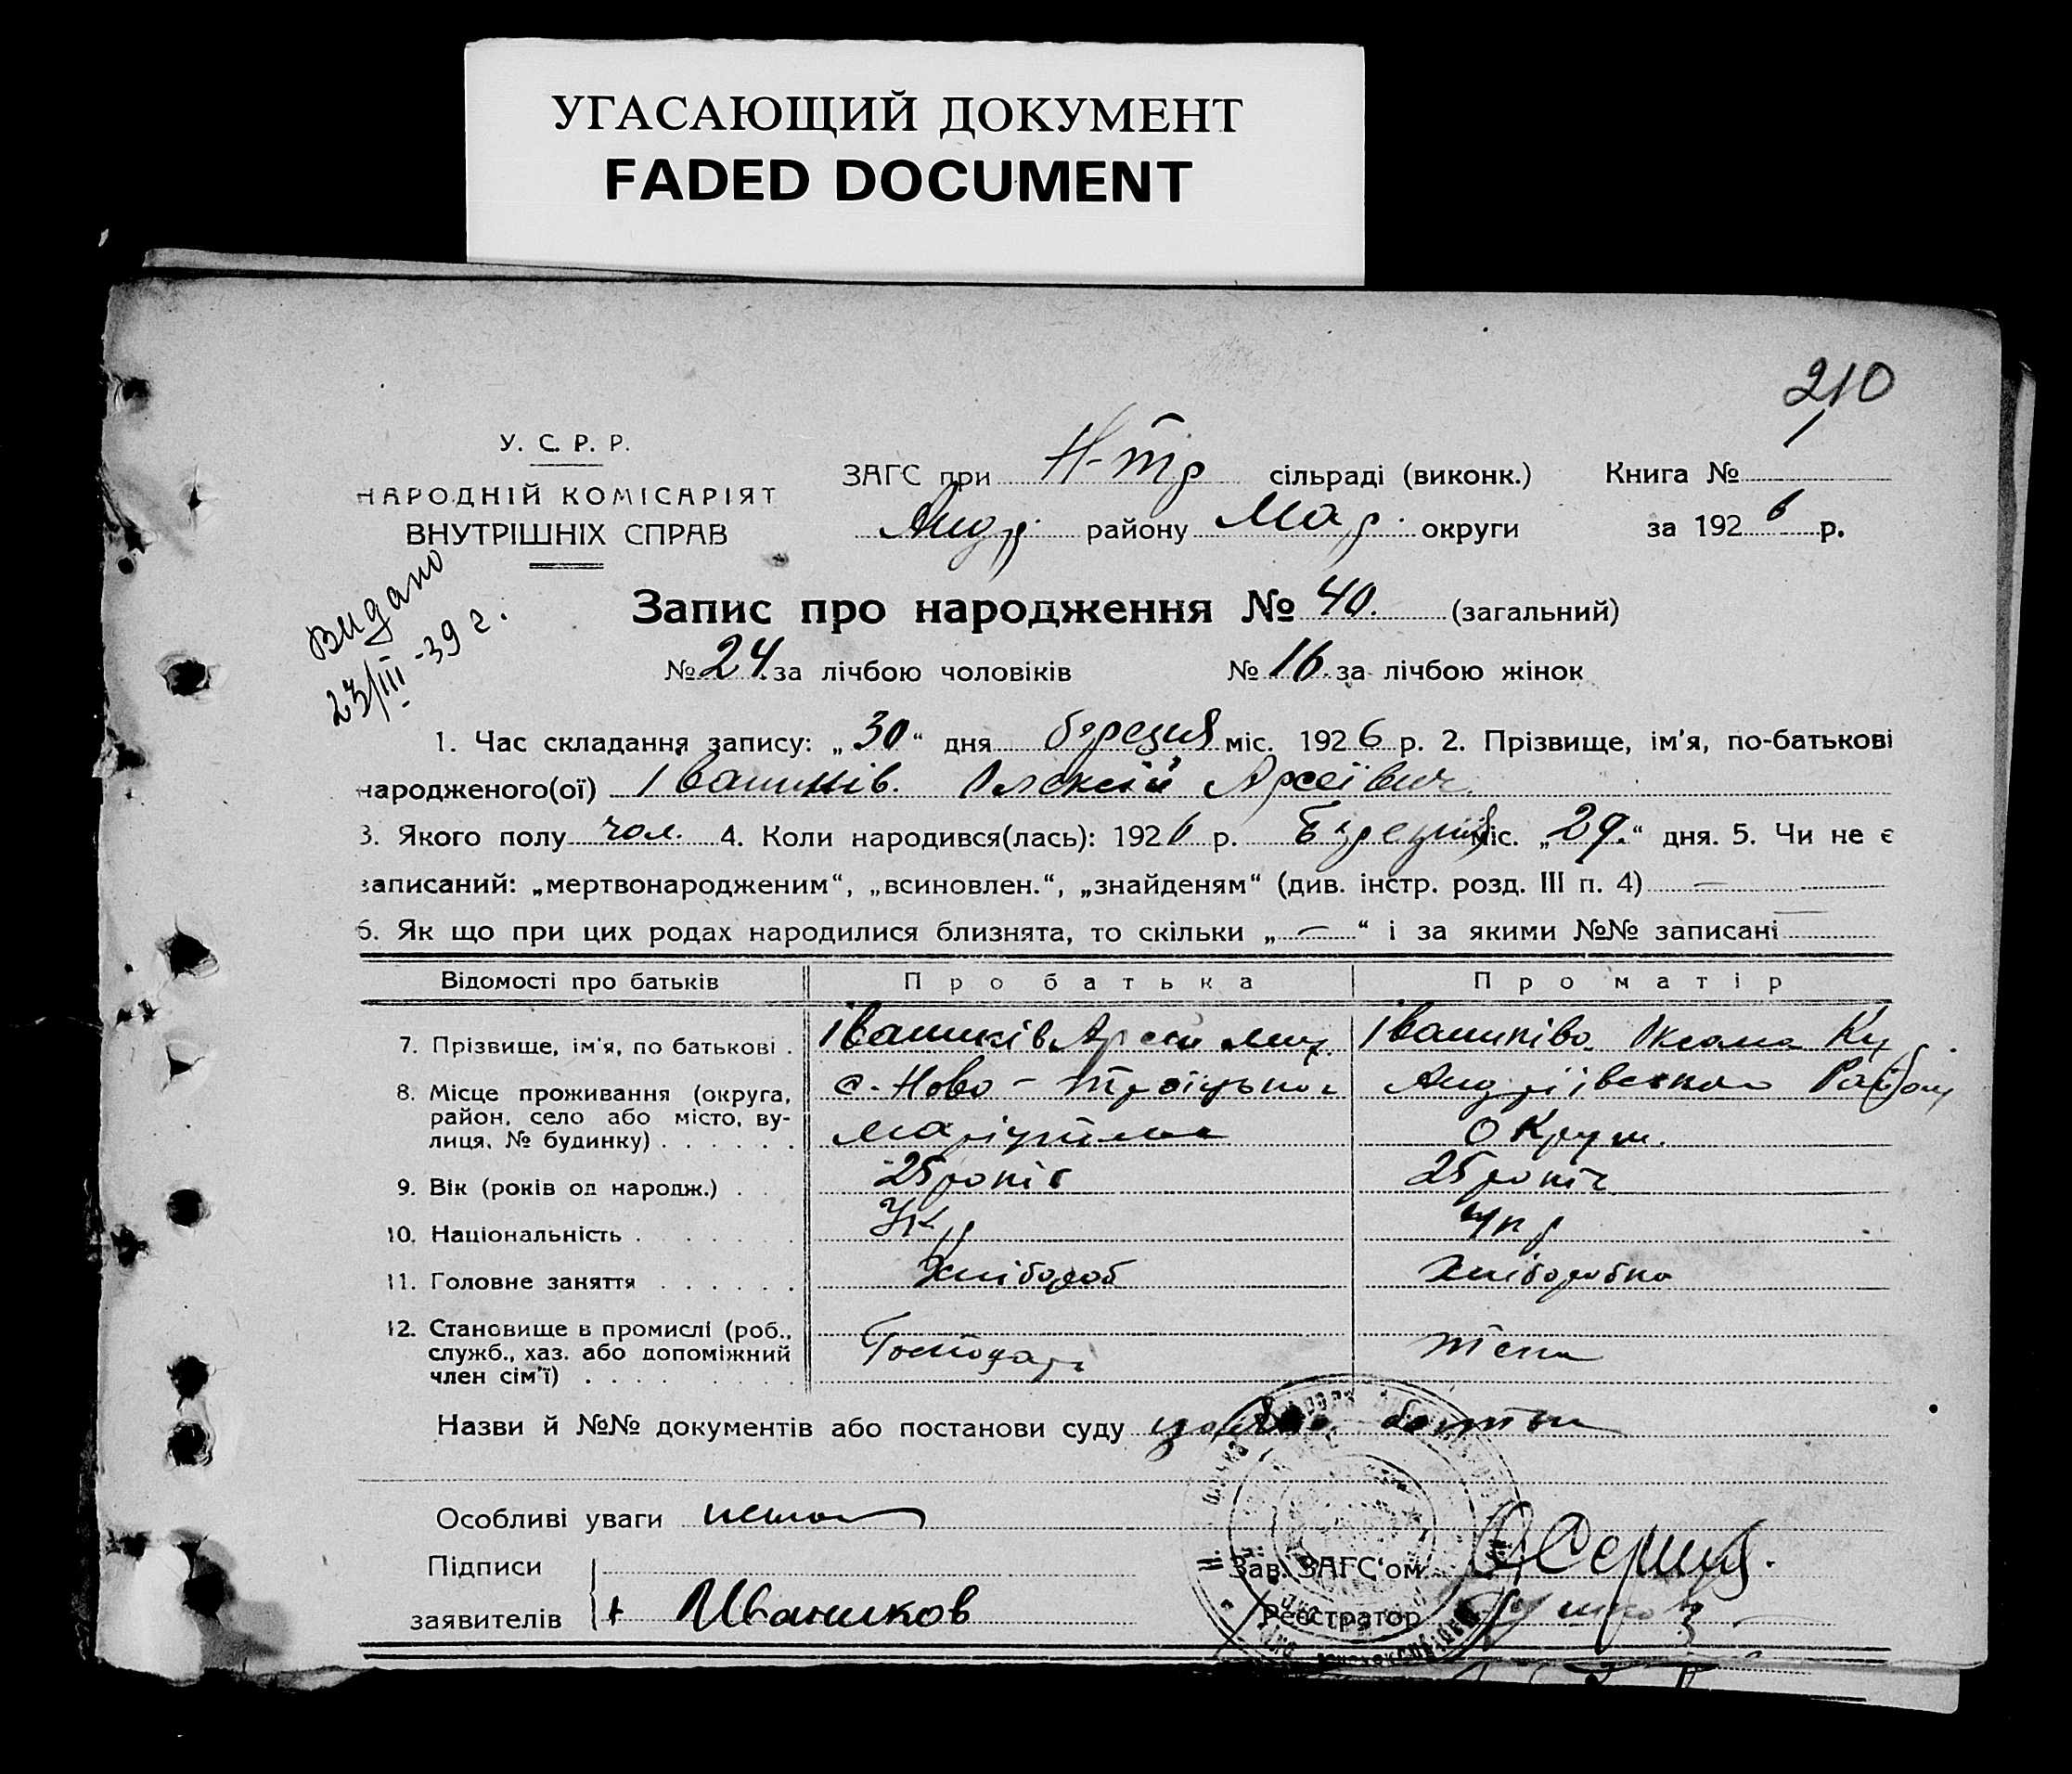 УГАСАЮЩИЙ ДОКУМЕНТ
FADED DOCUMENT
210
У. С. Р. Р.
НАРОДНІЙ КОМІСАРІЯТ
ВНУТРІШНІХ СПРАВ
ЗАГС при Н-Тр сільраді (виконк.) Книга № 1
Андр. району Мар. округи за 1926 р.
Видано
23/III-39 г.
Запис про народження № 40. (загальний)
№ 24. за лічбою чоловіків № 16. за лічбою жінок
1. Час складання запису: „30“ дня березня міс. 1926 р. 2. Прізвище, ім'я, по-батькові
народженого(ої) Іваників. Олексій Арсеївич
3. Якого полу чол. 4. Коли народився(лась): 1926 р. Березня міс. „29.“ дня. 5. Чи не є
записаний: „мертвонародженим“, „всиновлен.“, „знайденям“ (див. інстр. розд. III п. 4) —
6. Як що при цих родах народилися близнята, то скільки „—“ і за якими №№ записані —
Відомості про батьків Про батька Про матір
7. Прізвище, ім'я, по батькові . Іваників Арсей Іваниківа Оксана
8. Місце проживання (округа, район, село або місто, вулиця, № будинку) с. Ново-Троїцьког Андріївського Району
Маріупільс Округи.
9. Вік (років од народж.) . 25 років 25 років
10. Національність . Укр Укр
11. Головне заняття Хлібороб Хліборобка
12. Становище в промислі (роб.,
служб., хаз. або допоміжний
член сім'ї) Господарь
Назви й №№ документів або постанови суду батьки
Особливі уваги нема
Підписи Зав. ЗАГС'ом
заявителів Иваников Реєстратор